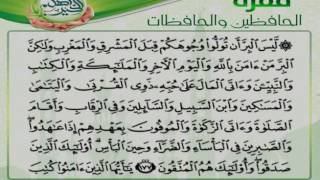 فقرة
الحافظين والحافظات
لَّيْسَ ٱلْبِرَّ أَن تُوَلُّوا۟ وُجُوهَكُمْ قِبَلَ ٱلْمَشْرِقِ وَٱلْمَغْرِبِ وَلَٰكِنَّ
ٱلْبِرَّ مَنْ ءَامَنَ بِٱللَّهِ وَٱلْيَوْمِ ٱلْءَاخِرِ وَٱلْمَلَٰٓئِكَةِ وَٱلْكِتَٰبِ
وَٱلنَّبِيِّۦنَ وَءَاتَى ٱلْمَالَ عَلَىٰ حُبِّهِۦ ذَوِى ٱلْقُرْبَىٰ وَٱلْيَتَٰمَىٰ
وَٱلْمَسَٰكِينَ وَٱبْنَ ٱلسَّبِيلِ وَٱلسَّآئِلِينَ وَفِى ٱلرِّقَابِ وَأَقَامَ
ٱلصَّلَوٰةَ وَءَاتَى ٱلزَّكَوٰةَ وَٱلْمُوفُونَ بِعَهْدِهِمْ إِذَا عَٰهَدُوا۟
وَٱلصَّٰبِرِينَ فِى ٱلْبَأْسَآءِ وَٱلضَّرَّآءِ وَحِينَ ٱلْبَأْسِ أُو۟لَٰٓئِكَ ٱلَّذِينَ
صَدَقُوا۟ وَأُو۟لَٰٓئِكَ هُمُ ٱلْمُتَّقُونَ ١٧٧ يَٰٓأَيُّهَا ٱلَّذِينَ ءَامَنُوا۟ كُتِبَ